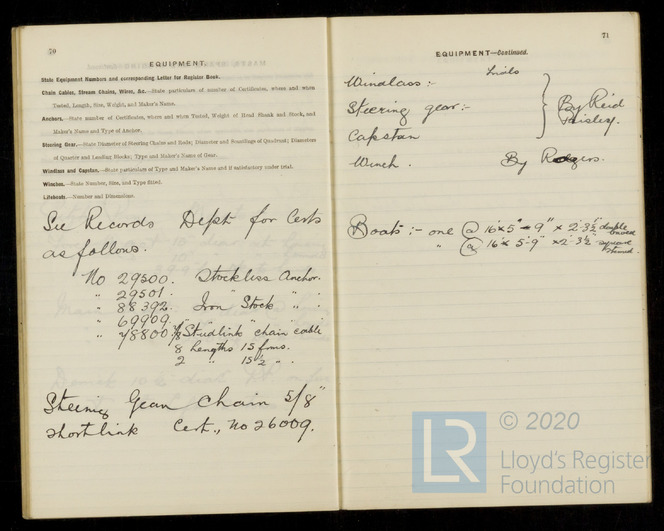 70
EQUIPMENT.
State Equipment Numbers and corresponding Letter for Register Book.
Chain Cables, Stream Chains, Wires, &c.—State particulars of number of Certificates, where and when
Tested, Length, Size, Weight, and Maker's Name.
Anchors.—State number of Certificates, where and when Tested, Weight of Head Shank and Stock, and
Maker's Name and Type of Anchor.
Steering Gear.—State Diameter of Steering Chains and Rods; Diameter and Scantlings of Quadrant; Diameters
of Quarter and Leading Blocks; Type and Maker's Name of Gear.
Windlass and Capstan.—State particulars of Type and Maker's Name and if satisfactory under trial.
Winches.—State Number, Size, and Type fitted.
Lifeboats.—Number and Dimensions.
See Records Dept for Certs
as follows.
No 29500. Stockless Anchor.
" 29501. " "
" 88392. Iron Stock " .
" 69909. " " "
" 78800. Studlink chain cable
8 lengths 15 fms.
2 " 15½ " .
Steering Gear Chain 5/8"
short link Cert., No 26009.
71
EQUIPMENT—Continued.
Trials
Windlass :-
Steering gear :- By Reid
Capstan Paisley.
Winch. By Rodgers.
Boats :- one @ 16' x 5' - 9" x 2'-3½" double
" @ 16' x 5'-9" x 2'-3½" square
© 2020
LR
Lloyd's Register
Foundation